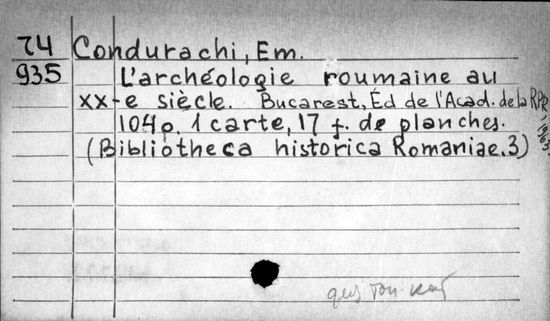 74 Condurachi, Em.
935 L'archéologie roumaine au
XX-e siècle. Bucarest, Éd de l'Acad. de la RPR, 1963
104p. 1 carte, 17 f. de planches.
(Bibliotheca historica Romaniae. 3)